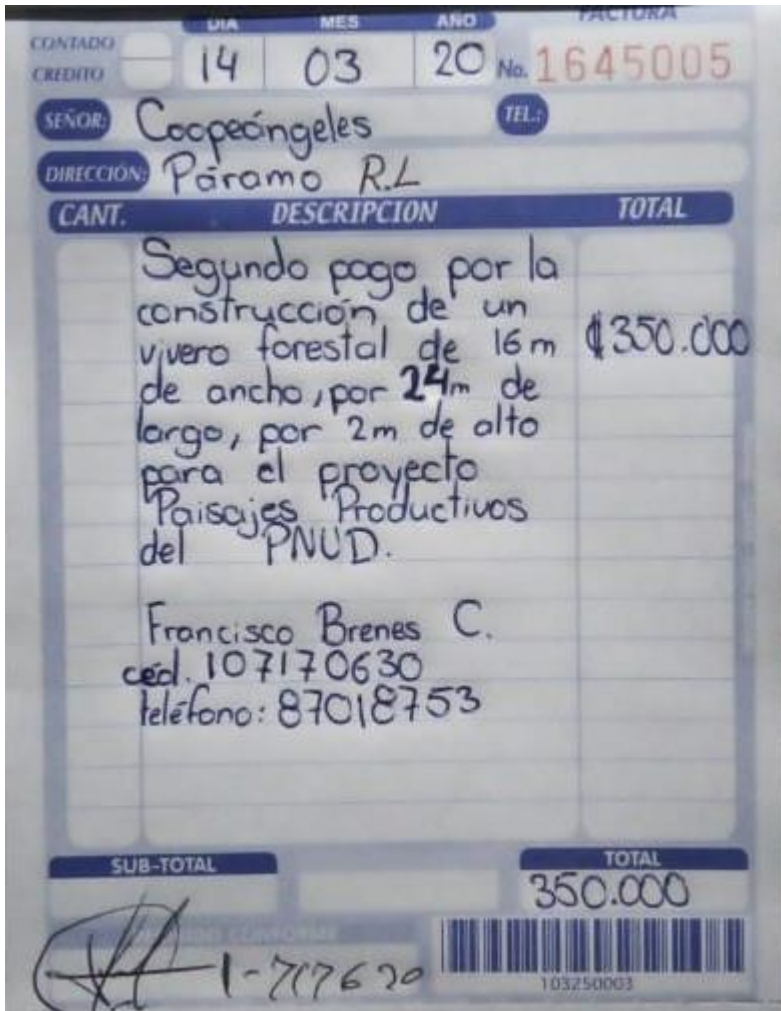 DIA MES AÑO FACTURA
CONTADO
CREDITO
14 03 20 No. 1645005
SEÑOR: Coopeángeles TEL.:
DIRECCIÓN: Páramo R.L
CANT. DESCRIPCION TOTAL
Segundo pago por la
construcción de un
vivero forestal de 16m ₡350.000
de ancho, por 24m de
largo, por 2m de alto
para el proyecto
Paisajes Productivos
del PNUD.
Francisco Brenes C.
céd. 107170630
teléfono: 87018753
SUB-TOTAL TOTAL
350.000
103250003